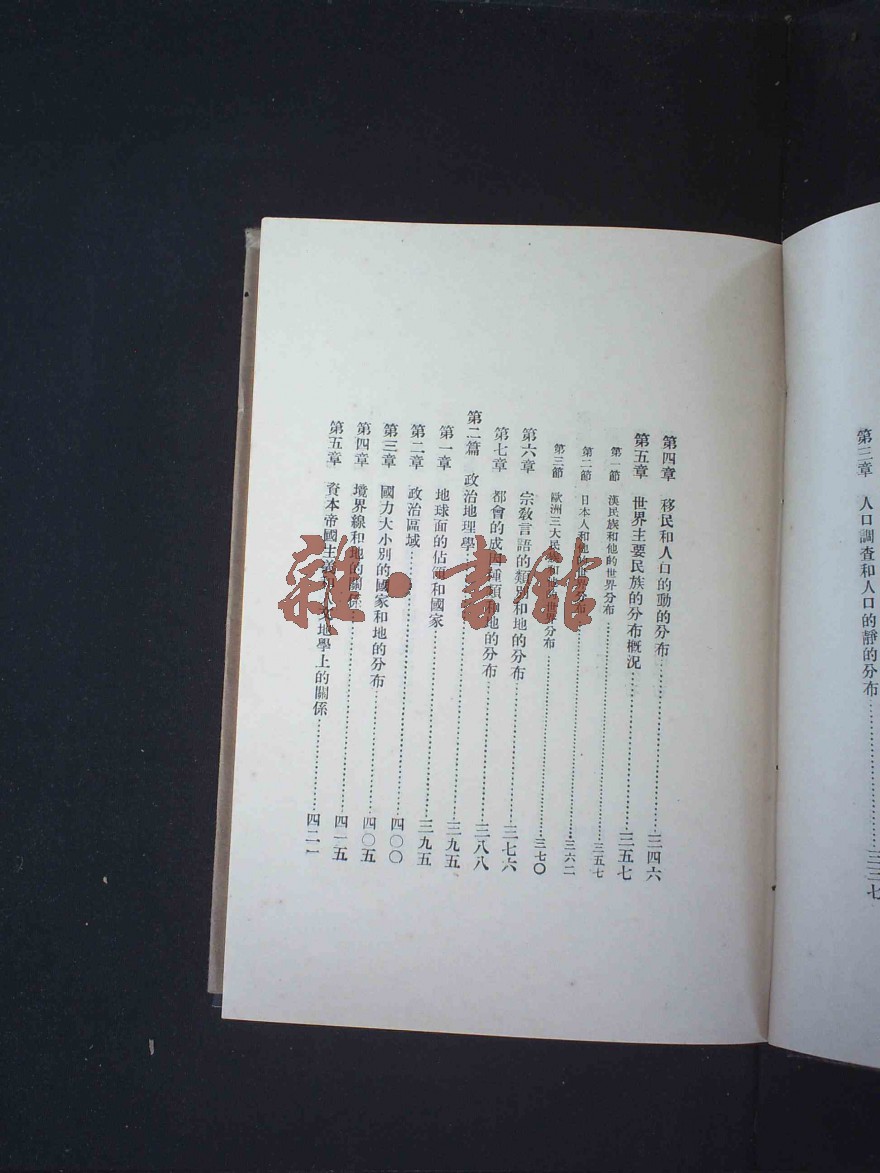 第三章 人口調查和人口的靜的分布……三三七
第四章 移民和人口的動的分布……三四六
第五章 世界主要民族的分布概況……三五七
第一節 漢民族和他的世界分布……三五七
第二節 日本人和他的世界分布……三六二
第三節 歐洲三大民族 世界分布……三七〇
第六章 宗教言語的類別和地的分布……三七六
第七章 都會的成因種類和地的分布……三八八
第二篇 政治地理學……三九五
第一章 地球面的佔領和國家……三九五
第二章 政治區域……四〇〇
第三章 國力大小別的國家和地的分布……四〇五
第四章 境界線和地的關係……四一五
第五章 資本帝國主義和人文地學上的關係……四二一
雜·書館